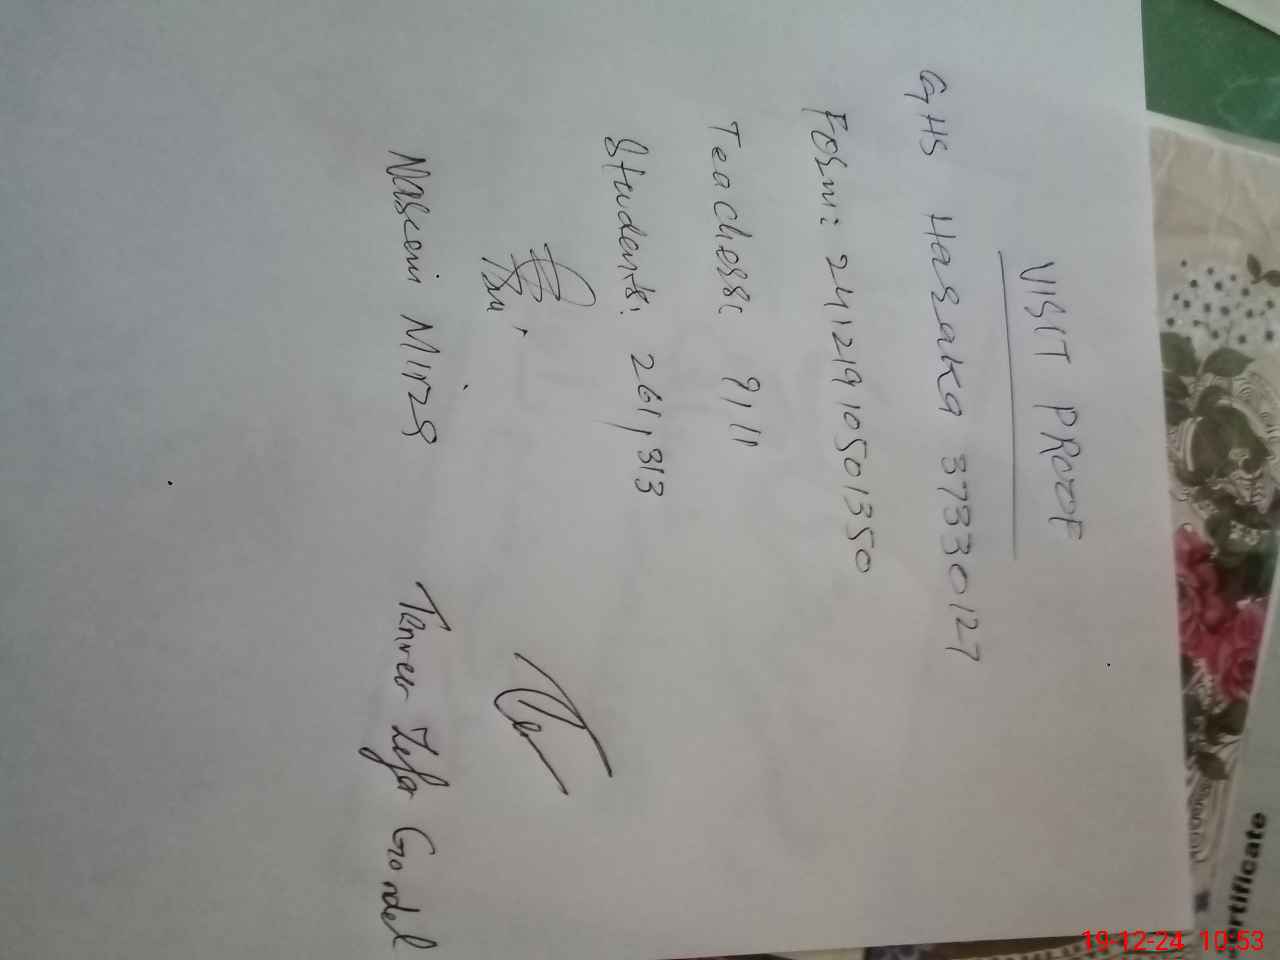 VISIT PROOF
GHS Hasaka 37330127
Form: 24121910501350
Teachers: 9,11
Students: 261,313
Naseem Mirza
Tanveer Zafar Gondal
rtificate
19-12-24 10:53